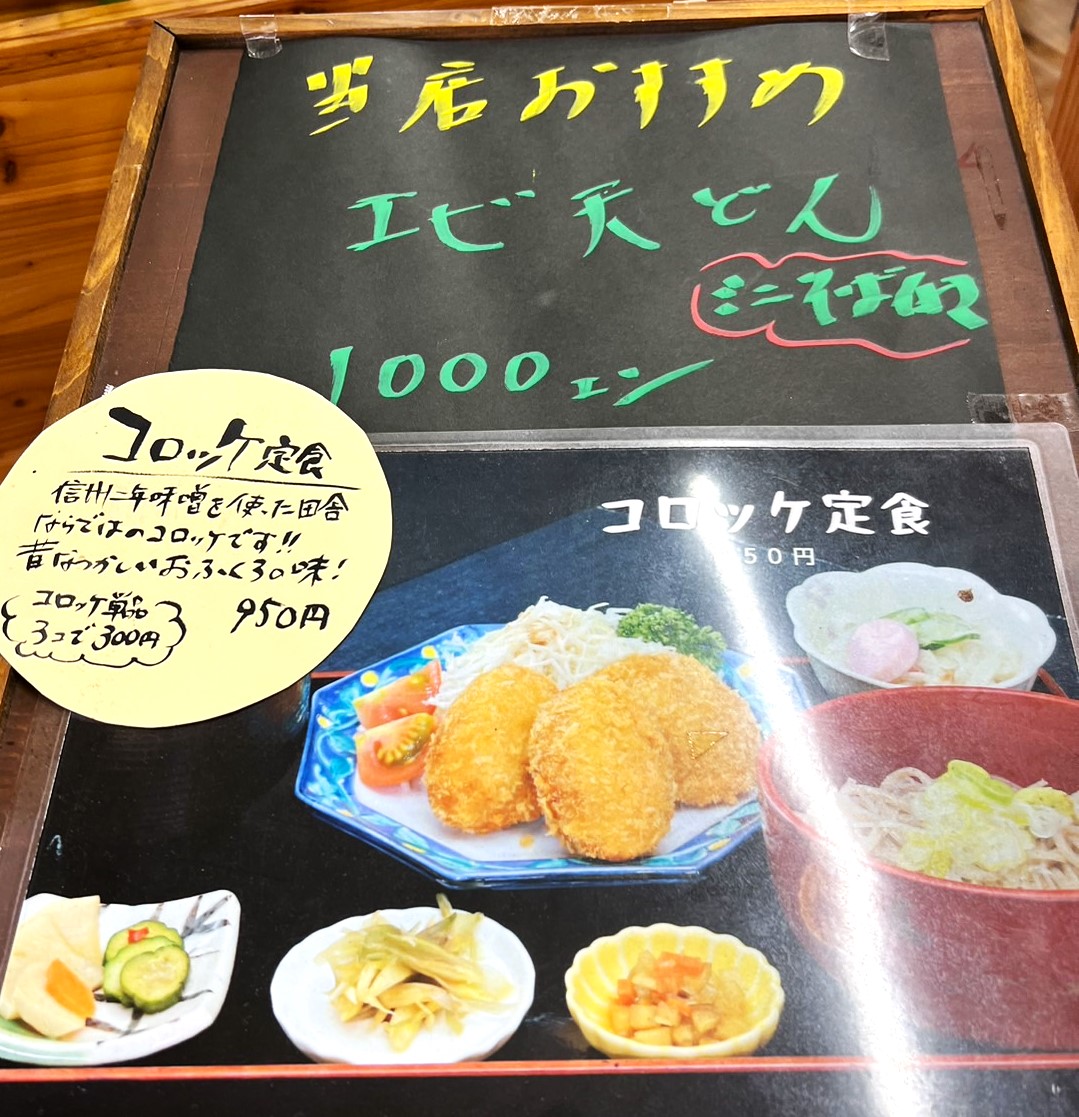 当店おすすめ
エビ天どん
ミニそば付
1000エン
コロッケ定食
信州二年味噌を使った田舎
ならではのコロッケです!!
昔なつかしいおふくろの味!
コロッケ単品
3コで300円
950円
コロッケ定食
50円